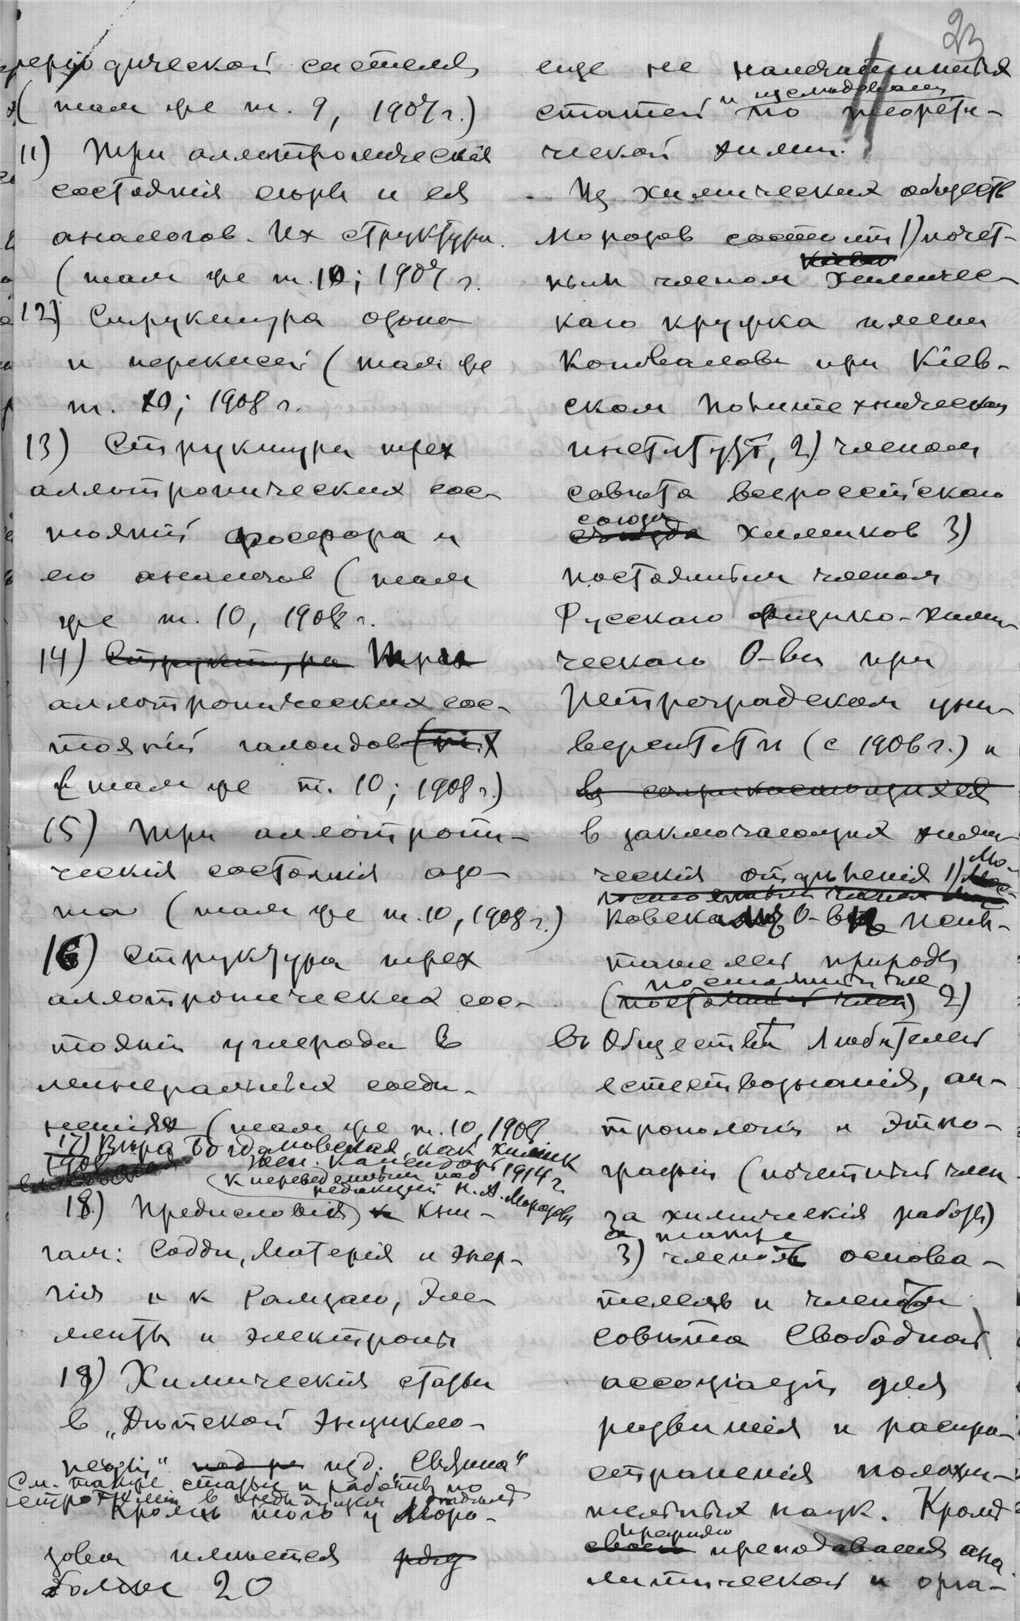 23
періодической системѣ
(там же т. 9, 1907 г.)
11) Три аллотропическія
состоянія сѣры и ея
аналогов. Их структура.
(там же т. 10; 1907 г.
12) Структура озона
и перекисей (там же
т. 10; 1908 г.
13) Структура трех
аллотропических сос-
тояній фосфора и
его аналогов (там
же т. 10, 1908 г.
14) Структура Трех
аллотропических сос-
тояній галоидов
(там же т. 10; 1908 г.)
15) Три аллотропи-
ческія состоянія азо-
та (там же т. 10, 1908 г.)
16) Структура трех
аллотропических сос-
тояній углерода в
минеральных соеди-
неніях (там же т. 10, 1908
17) Вѣра Богдановская, как химик
Жен. Календарь 1914 г.
(к переведенным под
редакціей Н. А. Морозова
18) Предисловія) к кни-
гам: Содди, Матерія и энер-
гія и к Рамзаю, Эле-
менты и электроны
19) Химическія статьи
в „Дѣтской Энцикло-
педіи" изд. Сытина"
См. также статьи и работы по
в предыдущем отдѣлѣ
Кромѣ того у Моро-
зова имѣется
болѣе 20
еще не напечатанных
статей и изслѣдованій по теорети-
ческой химіи.
Из химических обществ
Морозов состоит 1) почет-
ным членом Химичес-
каго кружка имени
Коновалова при Кіев-
ском Политехническом
институтѣ, 2) членом
совѣта всероссійскаго
союза съѣзда химиков 3)
постоянным членом
Русскаго Физико-хими-
ческаго О-ва при
Петроградском уни-
верситетѣ (с 1906 г.) и
в соприкасающихся
в заключающих хими-
ческія отдѣленія 1) Мо-
сковское О-во испы-
тателей природы
постоянный чле
(постоянный член) 2)
въ Обществѣ Любителей
естествознанія, ан-
тропологіи и этно-
графіи (почетный член
за химическія работы)
а также
3) членом основа-
телем и членом
совѣта Свободной
ассоціаціи для
развитія и распро-
страненія положи-
тельных наук. Кромѣ
своего прежняго преподаванія ана-
литической и орга-